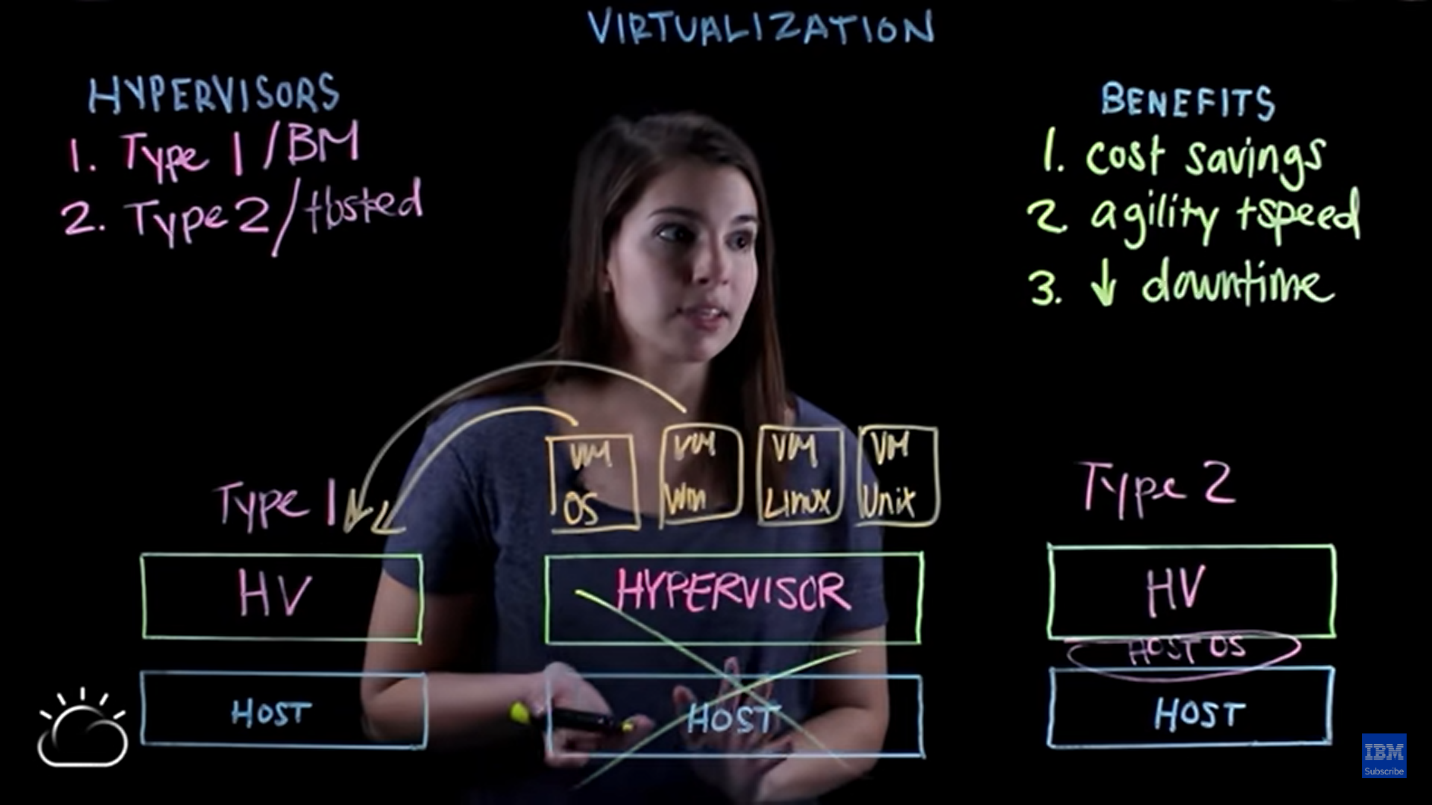 VIRTUALIZATION
HYPERVISORS
1. Type 1/BM
2. Type 2/Hosted
BENEFITS
1. cost savings
2. agility + speed
3. ↓ downtime
Type 1
HV
HOST
VM
OS
VM
Win
VM
Linux
VM
Unix
HYPERVISOR
HOST
Type 2
HV
HOST OS
HOST
IBM
Subscribe